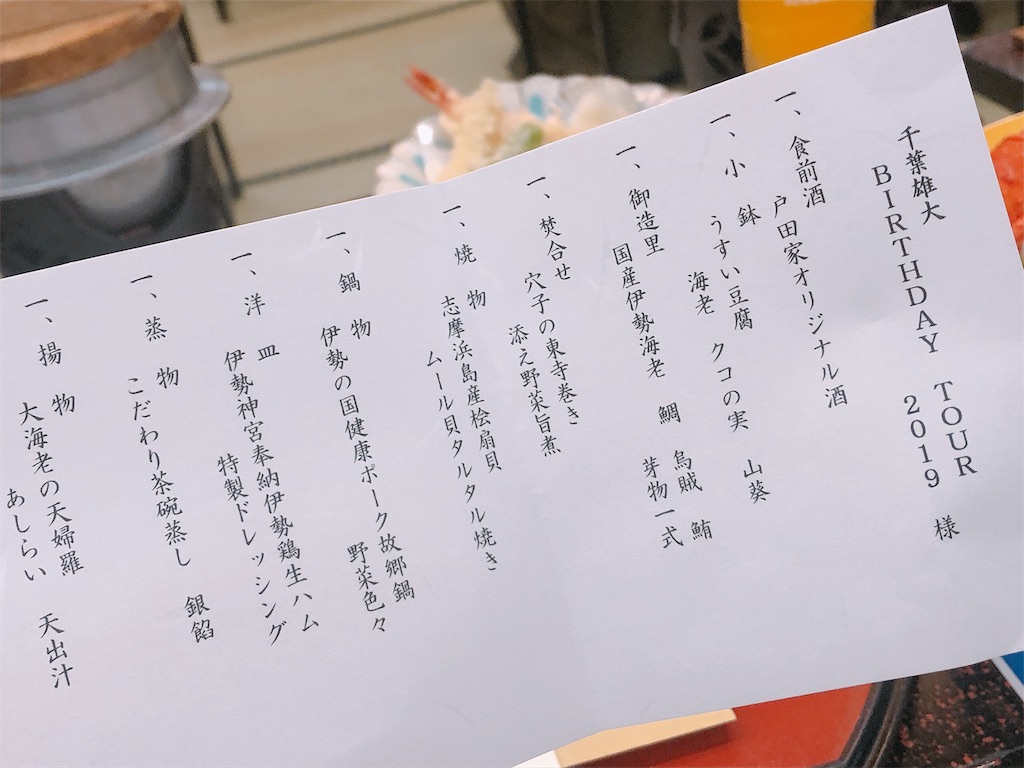 千葉雄大
BIRTHDAY TOUR
2019 様
一、食前酒
戸田家オリジナル酒
一、小鉢
うすい豆腐 クコの実 山葵
海老
一、御造里
国産伊勢海老 鯛 烏賊 鮪
芽物一式
一、焚合せ
穴子の東寺巻き
添え野菜旨煮
一、焼物
志摩浜島産桧扇貝
ムール貝タルタル焼き
一、鍋物
伊勢の国健康ポーク故郷鍋
野菜色々
一、洋皿
伊勢神宮奉納伊勢鶏生ハム
特製ドレッシング
一、蒸物
こだわり茶碗蒸し 銀餡
一、揚物
大海老の天婦羅
あしらい 天出汁